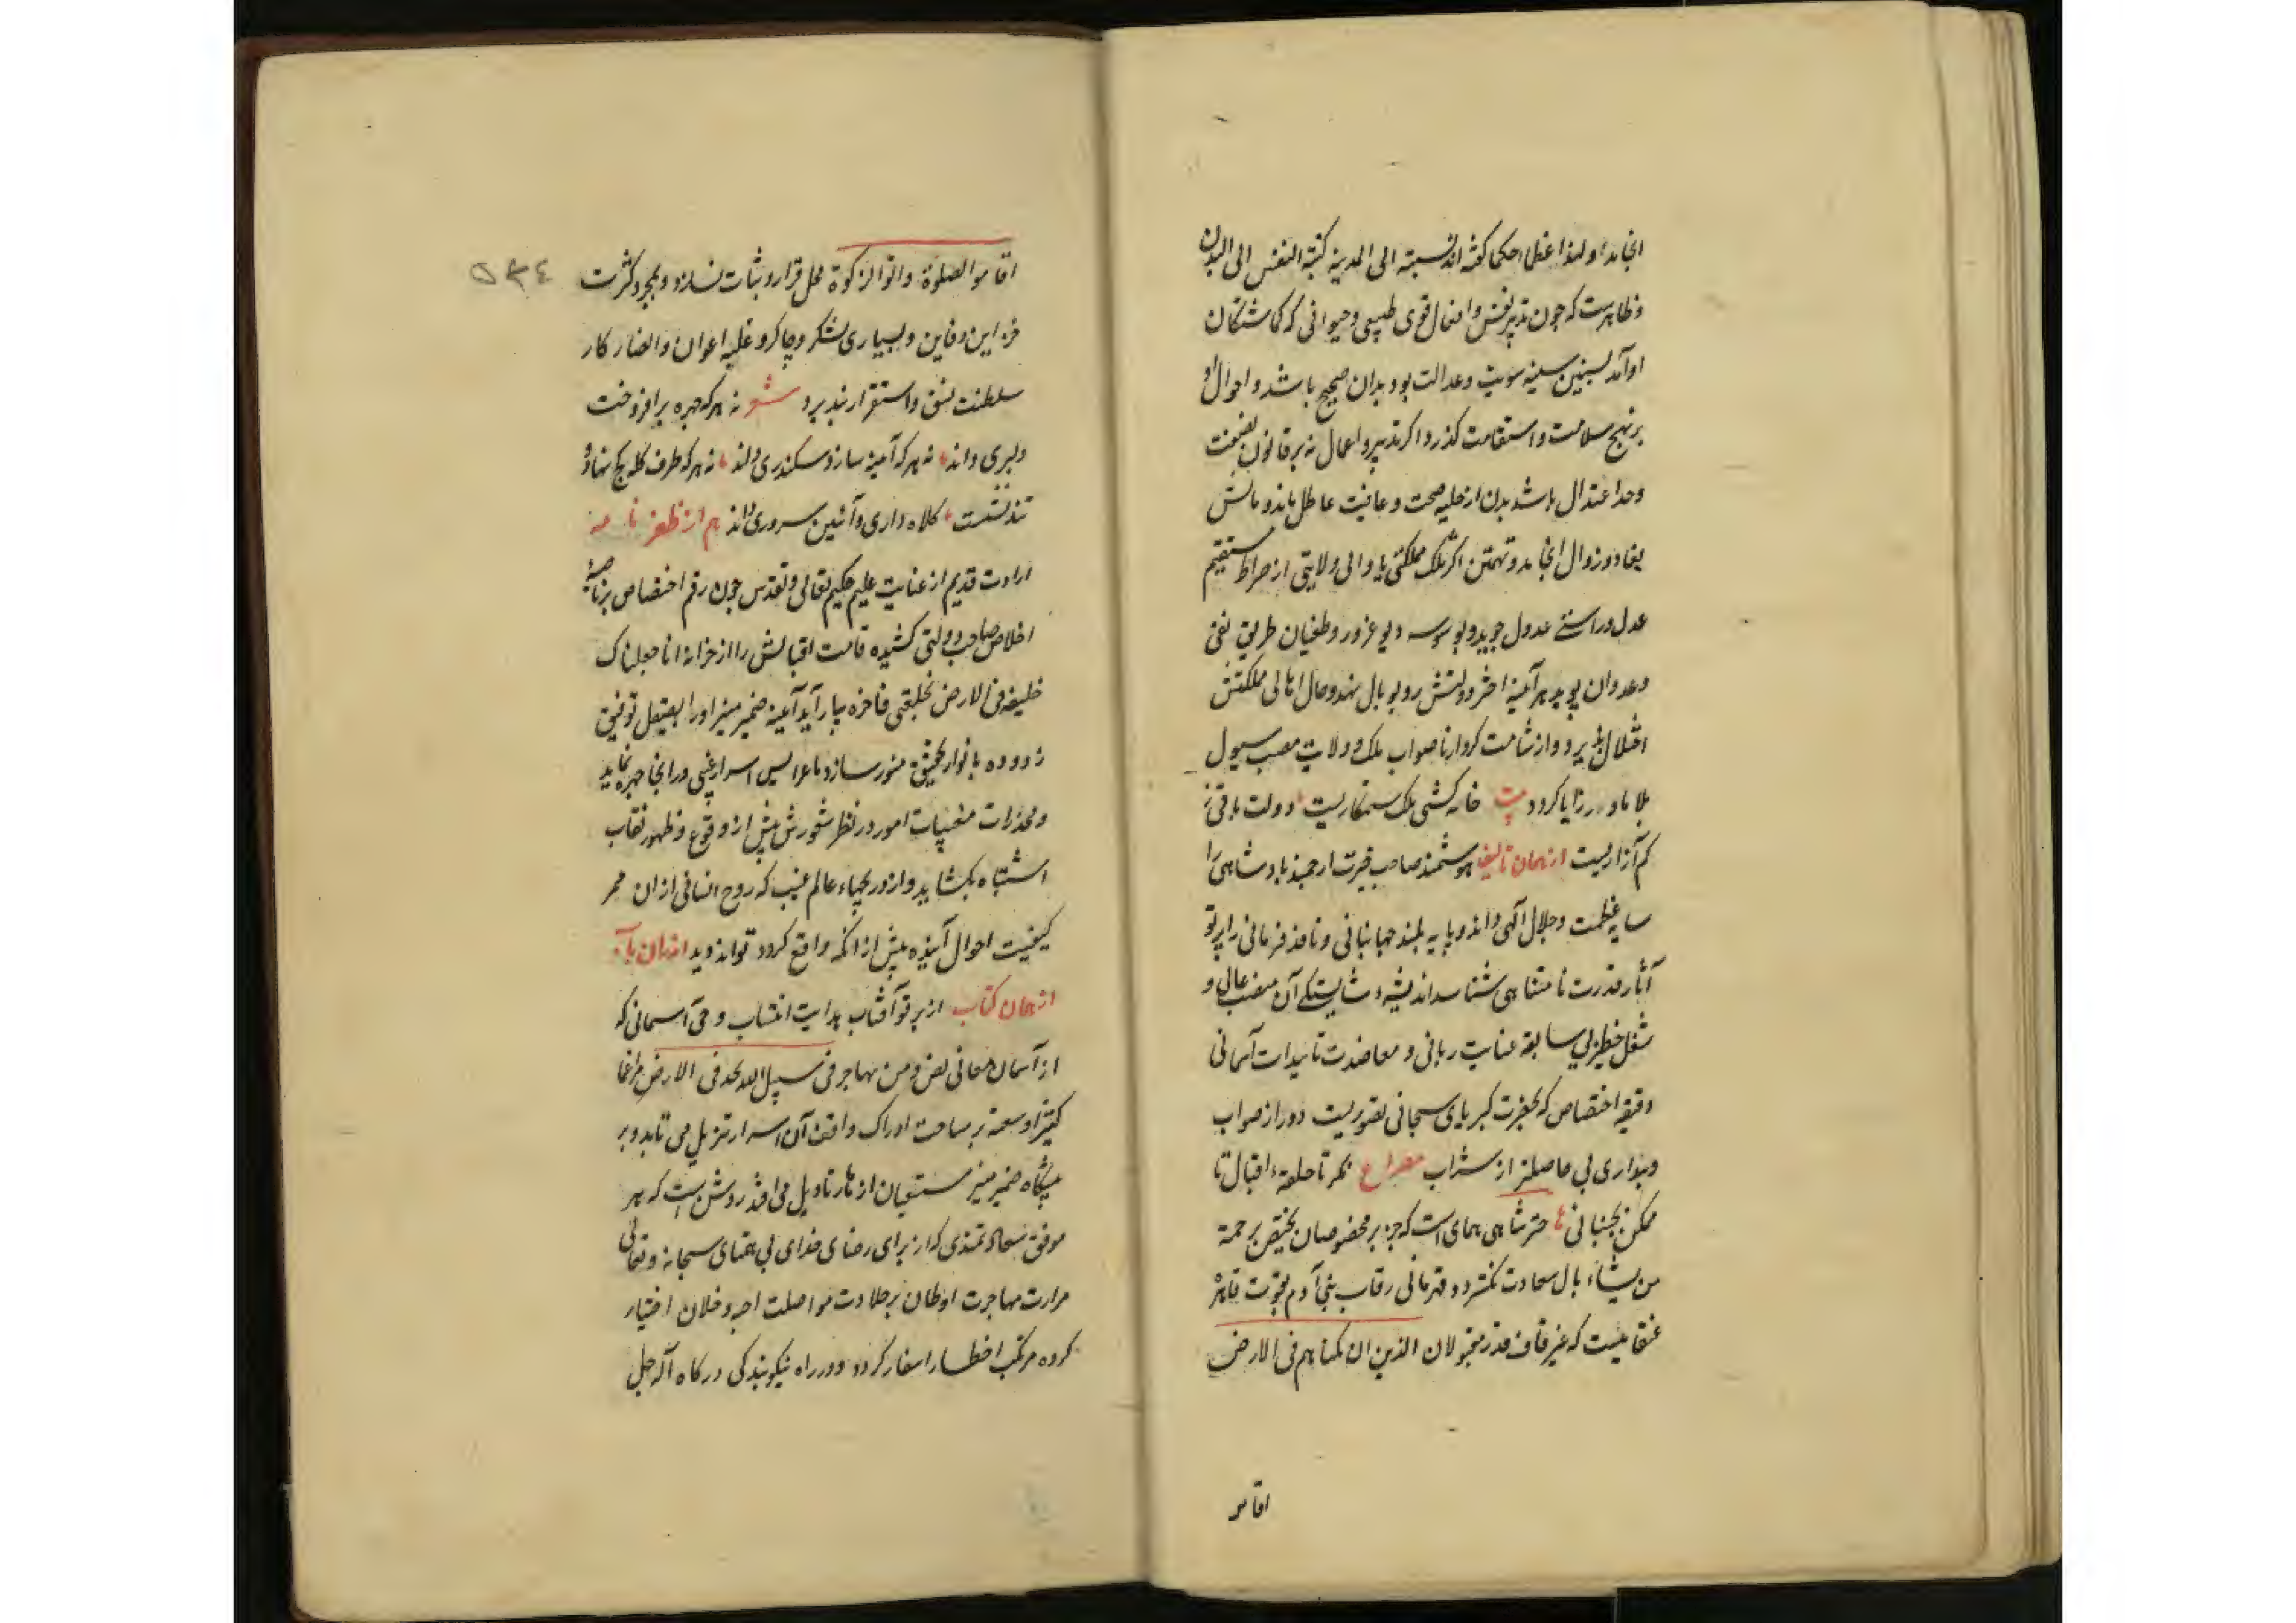 انجامد و لهذا عظماء حکما گفته‌اند نسبته الی المدینه کنسبة النفس الی البدن
و ظاهرست که چون تدبیر نفس و افعال قوی طبیعی و حیوانی که گماشتگان
اوآند بسنن سنیه سویت و عدالت بود بدان صحیح باشد و احوال او
بر نهج سلامت و استقامت گذرد و اگر تدبیر و اعمال نه بر قانون
و حد اعتدال باشد بدن از حلیه صحت و عافیت عاطل ماند و مآلش
بفساد و زوال انجامد و تهمتن اگر ملک مملکتی یا والی ولایتی از صراط مستقیم
عدل و راستی عدول جوید و بوسوسه دیو غرور و طغیان طریق بغی
و عدوان پوید هر آینه اختر دولتش رو بوبال نهد و حال اهالی مملکتش
اختلال پذیرد و از شامت کردار ناصواب ملک و ولایت مصب سیول
بلایا و رزایا گردد بیت خانه کشی ملک ستمکاریست دولت باقی ز
کم آزاریست از همان تالیف هوشمند صاحب خبرت ارجمند پادشاهی را
سایه عظمت و جلال آلهی داند و پایه بلند جهانبانی و نافذ فرمانی را پرتو
آثار قدرت نامتناهی شناسد اندیشه شایستگی آن منصب عالی و
شغل خطیر بی سابقه عنایت ربانی و معاضدت تاییدات آسمانی
دقیقه اختصاص که بحضرت کبریای سبحانی تصوریست دور از صواب
و بنواری بی حاصلتر از سراب مصراع نگر تا حلقهٔ اقبال نا
ممکن نجنبانی چتر شاهی همای است که جز بر مخصوصان یختص برحمته
من یشاء بال سعادت نگسترد و قهرمانی رقاب بنی آدم بقوت قاهره
عنقاییست که غیر قاف قدر مقبولان الذین ان مکناهم فی الارض
اقامو
اقاموا الصلوة واتوا الزکوة محل قرار و ثبات نسازد و بمجرد کثرت
خزاین و دفاین و بسیاری لشکر و چاکر و غلبه اعوان و انصار کار
سلطنت نسق و استقرار نپذیرد شعر نه هر که چهره برافروخت
دلبری داند نه هر که آینه سازد سکندری داند نه هر که طرف کله کج نهاد و
تند نشست کلاه داری و آئین سروری داند هم از ظفرنامه
ارادت قدیم از عنایت علیم حکیم تعالی و تقدس چون رقم اختصاص بر ناصیهٔ
اخلاص صاحب دولتی کشیده قامت اقبالش را از خزانه انا جعلناک
خلیفه فی الارض بخلعتی فاخره بیاراید آینه ضمیر منیر او را بصیقل توفیق
زدوده بانوار تحقیق منور سازد تا عرایس اسرار غیبی در انجا چهره نماید
و مخدرات مغیبات امور در نظر شعورش پیش از وقوع و ظهور نقاب
اشتباه بگشاید و از دریچهاء عالم غیب که روح انسانی از ان ممر
کیفیت احوال آینده پیش از انکه واقع گردد تواند دید
از همان کتاب از پرتو آفتاب هدایت انتساب وحی آسمانی که
از آسمان معانی نص ومن یهاجر فی سبیل الله یجد فی الارض مراغما
کثیرا وسعته بر ساحت ادراک واقف آن اسرار تنزیل می تابد و بر
پیشگاه ضمیر منیر از تاویل می افتد روشن است که هر
موفق سعادتمندی که از برای رضای خدای بی همتای سبحانه و تعالی
مرارت مهاجرت اوطان بر حلاوت مواصلت احبه و خلان اختیار
کرده مرتکب اخطار اسفار گردد و در راه نیکوبندگی درگاه آله جل